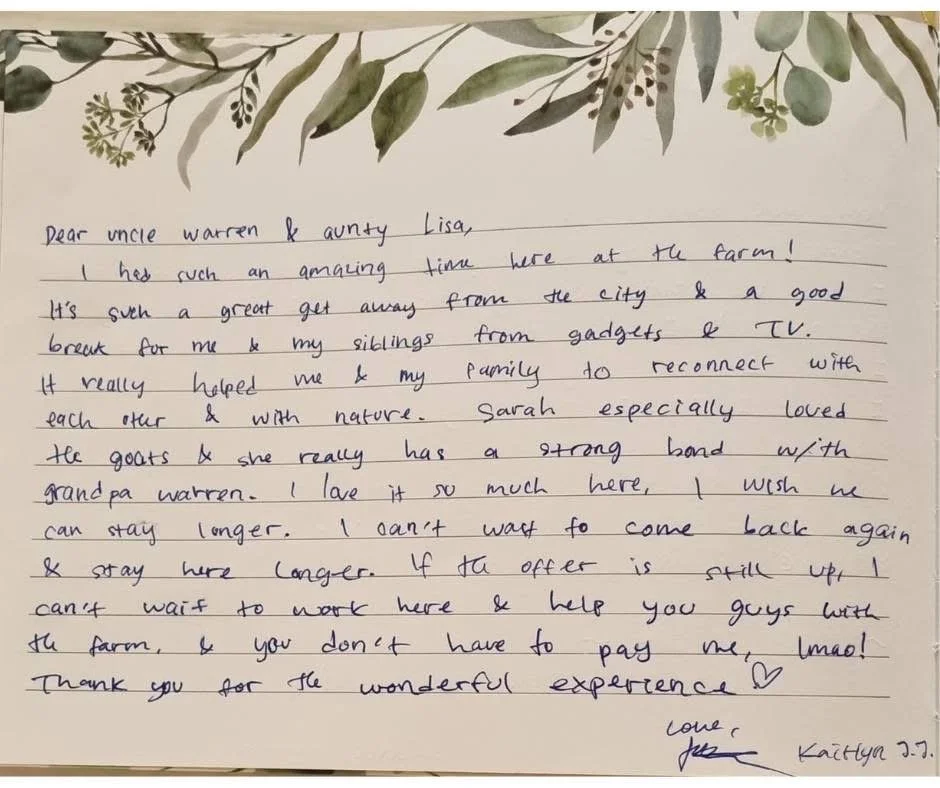 Dear uncle warren & aunty Lisa,
I had such an amazing time here at the farm!
It's such a great get away from the city & a good
break for me & my siblings from gadgets & TV.
It really helped me & my family to reconnect with
each other & with nature. Sarah especially loved
the goats & she really has a strong bond with
grandpa warren. I love it so much here, I wish we
can stay longer. I can't wait to come back again
& stay here longer. If the offer is still up, I
can't wait to work here & help you guys with
the farm, & you don't have to pay me, lmao!
Thank you for the wonderful experience ♡
Love,
Kaitlyn J.J.